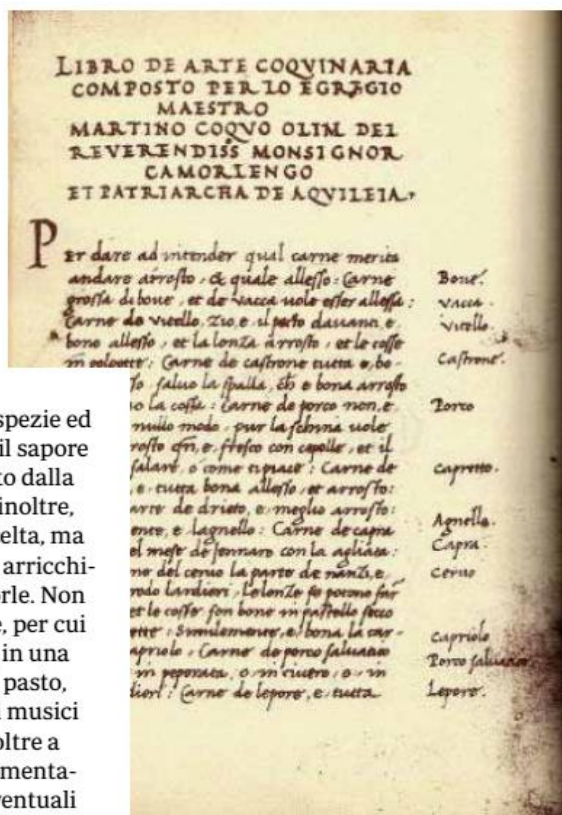 LIBRO DE ARTE COQVINARIA
COMPOSTO PER LO EGREGIO
MAESTRO
MARTINO COQVO OLIM DEL
REVERENDISS MONSIGNOR
CAMORLENGO
ET PATRIARCHA DE AQVILEIA.
Per dare ad intender qual carne merita
andare arrosto, & quale allesso: Carne
grossa di boue, et de vacca uole esser allessa:
Carne de vitello, zio e il pecto dauanti, e
bono allesso, et la lonza arrosto, et le cosse
in polpette: Carne de castrone tutta e, bo-
so saluo la spalla, ch e bona arrosto
uo la cossa: Carne de porco non, e
nullo modo, pur la schina uole
rosto fresco con cepolle, et il
salare, o come ti piace: Carne de
e, tutta bona allesso, et arrosto:
arte de drieto, e, meglio arrosto:
ente, e lagnello: Carne de capra
el mese de jennaro con la agliata:
ne del ceruo la parte de nanzi, e,
rodo lardieri, Le lonze se potono far
et le cosse son bone in pastello secco
ette: Similemente, e, bona la car-
apriolo, Carne de porco saluatico
in peperata, o in ciuero, o in
dieri: Carne de lepore, e, tutta
Boue.
Vacca.
Vitello.
Castrone.
Porco
Capretto.
Agnello.
Capra.
Ceruo
Capriolo
Porco saluatico.
Lepore.
spezie ed
il sapore
to dalla
inoltre,
elta, ma
arricchi-
orle. Non
e, per cui
in una
pasto,
i musici
oltre a
menta-
ventuali